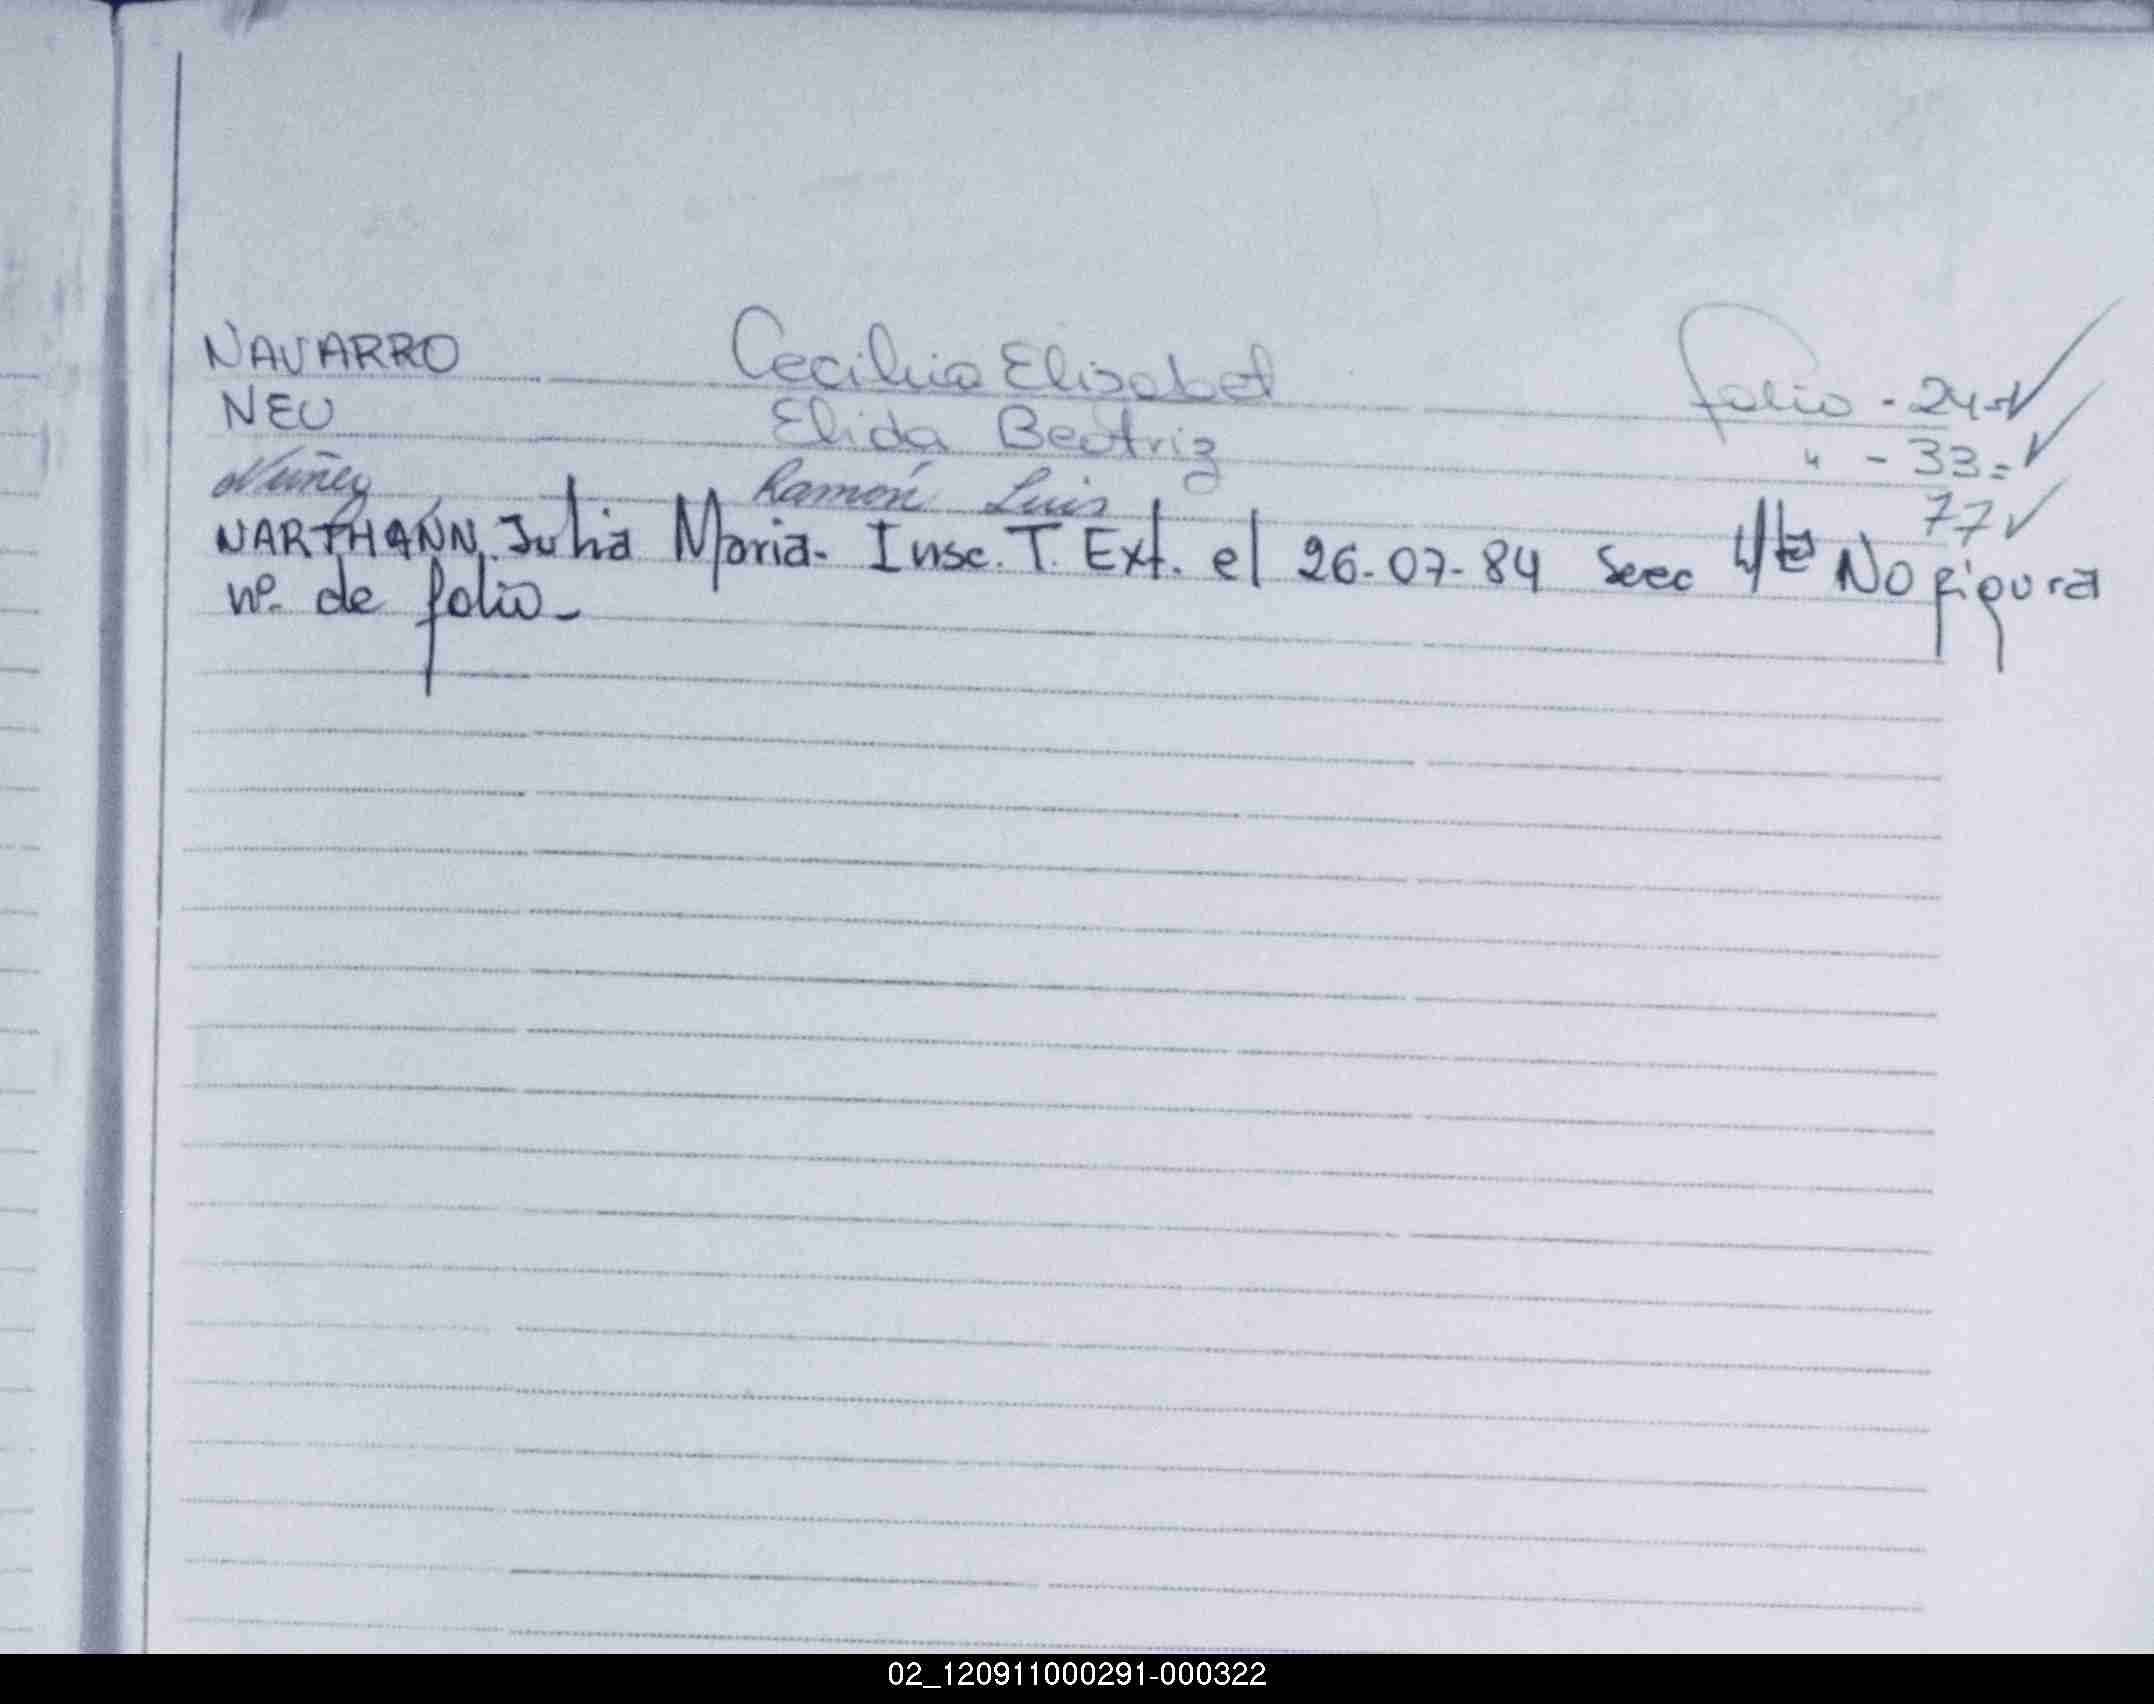 NAVARRO Cecilia Elisabet folio - 24 = ✓
NEU Elida Beatriz " - 33 = ✓
Nuñez Ramón Luis 77 ✓
NARTHANN, Julia Maria - Insc. T. Ext. el 26-07-84 Secc No figura
nº de folio -
02_120911000291-000322